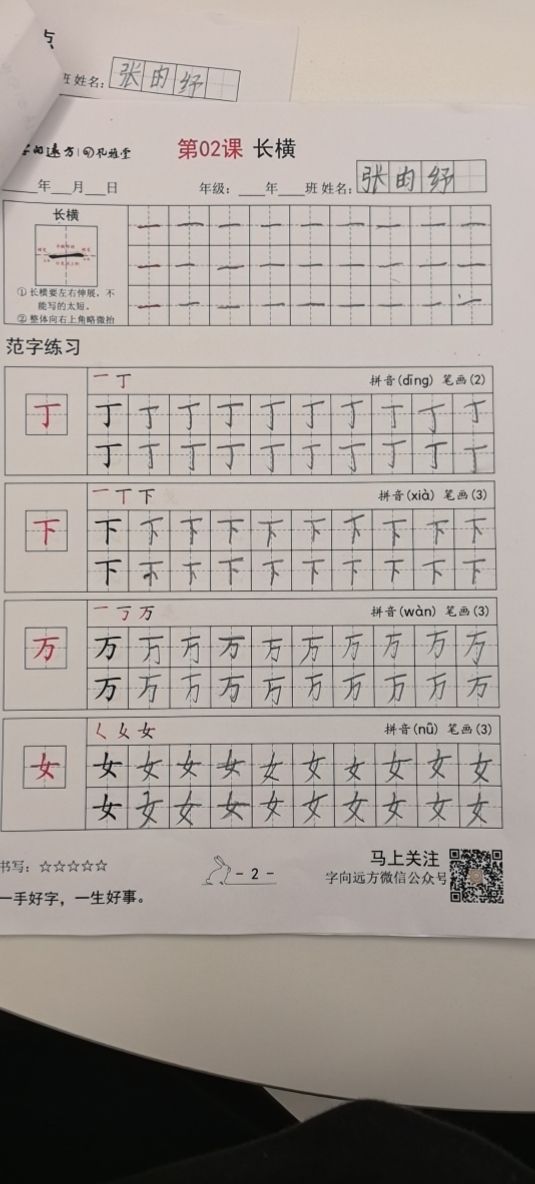 班 姓名：张
第02课 长横
年 月 日 年级： 年 班 姓名：张
长横
一 一 一 一 一 一 一 一 一
一 一 一 一 一 一 一 一 一
一 一 一 一 一 一 一 一 一
①长横要左右伸展，不
能写的太短。
②整体向右上角略微抬
范字练习
一 丁 拼音(dīng) 笔画(2)
丁 丁 丁 丁 丁 丁 丁 丁 丁 丁 丁
丁 丁 丁 丁 丁 丁 丁 丁 丁 丁
一 丅 下 拼音(xià) 笔画(3)
下 下 下 下 下 下 下 下 下 下 下
下 下 下 下 下 下 下 下 下 下
一 丂 万 拼音(wàn) 笔画(3)
万 万 万 万 万 万 万 万 万 万 万
万 万 万 万 万 万 万 万 万 万
女 拼音(nǚ) 笔画(3)
女 女 女 女 女 女 女 女 女 女 女
女 女 女 女 女 女 女 女 女 女
书写：☆☆☆☆☆
- 2 -
马上关注
字向远方微信公众号
一手好字，一生好事。